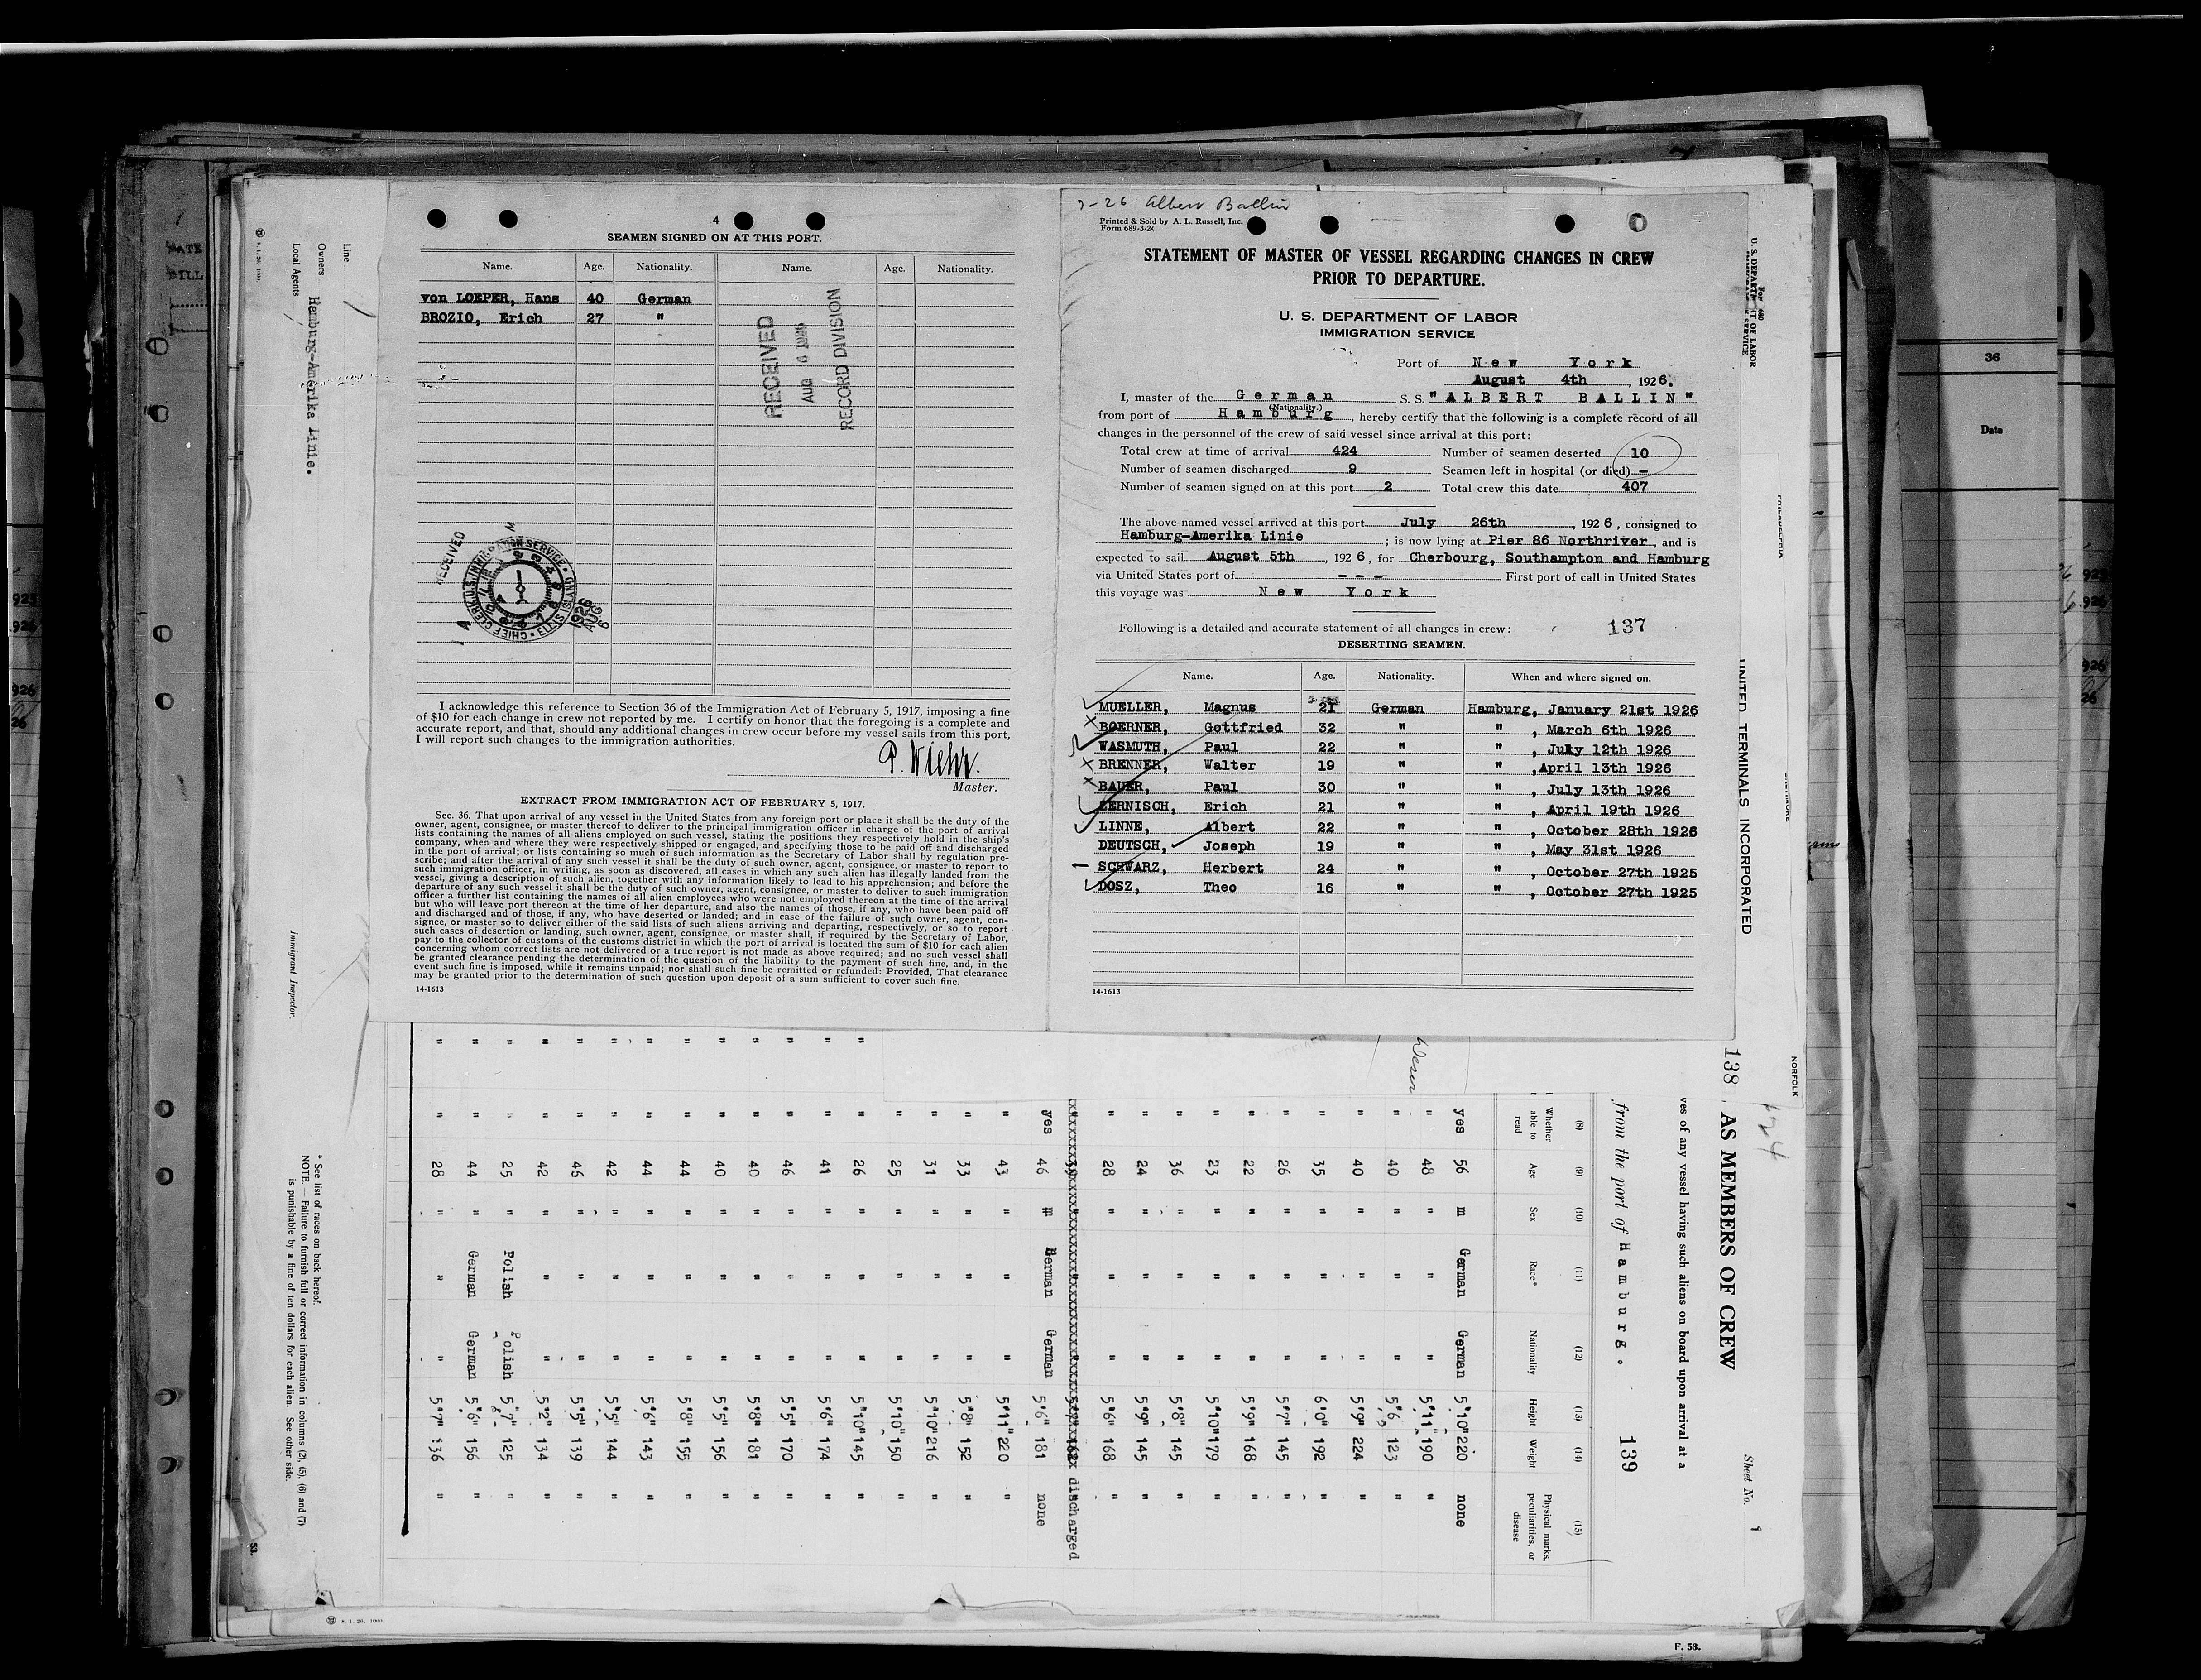 4
SEAMEN SIGNED ON AT THIS PORT.
Name. Age. Nationality. Name. Age. Nationality.
von LOEPER, Hans 40 German
BROZIO, Erich 27 "
RECEIVED
AUG 6 1926
RECORD DIVISION
RECEIVED
CHIEF CLERK, U.S. IMMIGRATION SERVICE • ELLIS ISLAND
1926
AUG
6
I acknowledge this reference to Section 36 of the Immigration Act of February 5, 1917, imposing a fine
of $10 for each change in crew not reported by me. I certify on honor that the foregoing is a complete and
accurate report, and that, should any additional changes in crew occur before my vessel sails from this port,
I will report such changes to the immigration authorities.
P. Wiehr.
Master.
EXTRACT FROM IMMIGRATION ACT OF FEBRUARY 5, 1917.
Sec. 36. That upon arrival of any vessel in the United States from any foreign port or place it shall be the duty of the
owner, agent, consignee, or master thereof to deliver to the principal immigration officer in charge of the port of arrival
lists containing the names of all aliens employed on such vessel, stating the positions they respectively hold in the ship's
company, when and where they were respectively shipped or engaged, and specifying those to be paid off and discharged
in the port of arrival; or lists containing so much of such information as the Secretary of Labor shall by regulation pre-
scribe; and after the arrival of any such vessel it shall be the duty of such owner, agent, consignee, or master to report to
such immigration officer, in writing, as soon as discovered, all cases in which any such alien has illegally landed from the
vessel, giving a description of such alien, together with any information likely to lead to his apprehension; and before the
departure of any such vessel it shall be the duty of such owner, agent, consignee, or master to deliver to such immigration
officer a further list containing the names of all alien employees who were not employed thereon at the time of the arrival
but who will leave port thereon at the time of her departure, and also the names of those, if any, who have been paid off
and discharged and of those, if any, who have deserted or landed; and in case of the failure of such owner, agent, con-
signee, or master so to deliver either of the said lists of such aliens arriving and departing, respectively, or so to report
such cases of desertion or landing, such owner, agent, consignee, or master shall, if required by the Secretary of Labor,
pay to the collector of customs of the customs district in which the port of arrival is located the sum of $10 for each alien
concerning whom correct lists are not delivered or a true report is not made as above required; and no such vessel shall
be granted clearance pending the determination of the question of the liability to the payment of such fine, and, in the
event such fine is imposed, while it remains unpaid; nor shall such fine be remitted or refunded: Provided, That clearance
may be granted prior to the determination of such question upon deposit of a sum sufficient to cover such fine.
14-1613
7-26 Albert Ballin
Printed & Sold by A. L. Russell, Inc.
Form 689-3-26
STATEMENT OF MASTER OF VESSEL REGARDING CHANGES IN CREW
PRIOR TO DEPARTURE.
U. S. DEPARTMENT OF LABOR
IMMIGRATION SERVICE
Port of New York
August 4th, 1926.
I, master of the German S. S. "ALBERT BALLIN"
(Nationality.)
from port of Hamburg, hereby certify that the following is a complete record of all
changes in the personnel of the crew of said vessel since arrival at this port:
Total crew at time of arrival 424 Number of seamen deserted 10
Number of seamen discharged 9 Seamen left in hospital (or died) —
Number of seamen signed on at this port 2 Total crew this date 407
The above-named vessel arrived at this port July 26th, 1926, consigned to
Hamburg-Amerika Linie; is now lying at Pier 86 Northriver, and is
expected to sail August 5th, 1926, for Cherbourg, Southampton and Hamburg
via United States port of - - - First port of call in United States
this voyage was New York
Following is a detailed and accurate statement of all changes in crew: 137
DESERTING SEAMEN.
Name. Age. Nationality. When and where signed on.
MUELLER, Magnus 21 German Hamburg, January 21st 1926
BOERNER, Gottfried 32 " " , March 6th 1926
WASMUTH, Paul 22 " " , July 12th 1926
BRENNER, Walter 19 " " ,April 13th 1926
BAUER, Paul 30 " " , July 13th 1926
ZERNISCH, Erich 21 " " , April 19th 1926
LINNE, Albert 22 " " , October 28th 1926
DEUTSCH, Joseph 19 " " , May 31st 1926
SCHWARZ, Herbert 24 " " , October 27th 1925
DOSZ, Theo 16 " " , October 27th 1925
14-1613
Line
Owners Hamburg-Amerika Linie.
Local Agents
Immigrant Inspector.
* See list of races on back hereof.
NOTE.—Failure to furnish full or correct information in columns (2), (5), (6) and (7)
is punishable by a fine of ten dollars for each alien. See other side.
UNITED TERMINALS INCORPORATED
NORFOLK
138 AS MEMBERS OF CREW
Sheet No. 9
ves of any vessel having such aliens on board upon arrival at a
from the port of Hamburg. 139
(8) (9) (10) (11) (12) (13) (14) (15)
Whether able to read Age Sex Race* Nationality Height Weight Physical marks, peculiarities, or disease
yes 56 m German German 5'10" 220 none
" 48 " " " 5'11" 190 "
" 40 " " " 5'6 123 "
" 40 " " " 5'9" 224 "
" 35 " " " 6'0" 192 "
" 26 " " " 5'7" 145 "
" 22 " " " 5'9" 168 "
" 23 " " " 5'10" 179 "
" 36 " " " 5'8" 145 "
" 24 " " " 5'9" 145 "
" 28 " " " 5'6" 168 "
discharged
yes 46 m German German 5'6" 181 none
" 43 " " " 5'11" 220 "
" 33 " " " 5'8" 152 "
" 31 " " " 5'10" 216 "
" 25 " " " 5'10" 150 "
" 26 " " " 5'10" 145 "
" 41 " " " 5'6" 174 "
" 46 " " " 5'5" 170 "
" 40 " " " 5'8" 181 "
" 40 " " " 5'5" 156 "
" 44 " " " 5'8" 155 "
" 44 " " " 5'6" 143 "
" 42 " " " 5'5" 144 "
" 46 " " " 5'5" 139 "
" 42 " " " 5'2" 134 "
" 25 " Polish Polish 5'7" 125 "
" 44 " German German 5'6" 156 "
" 28 " " " 5'7" 136 "
36
Date
F. 53.